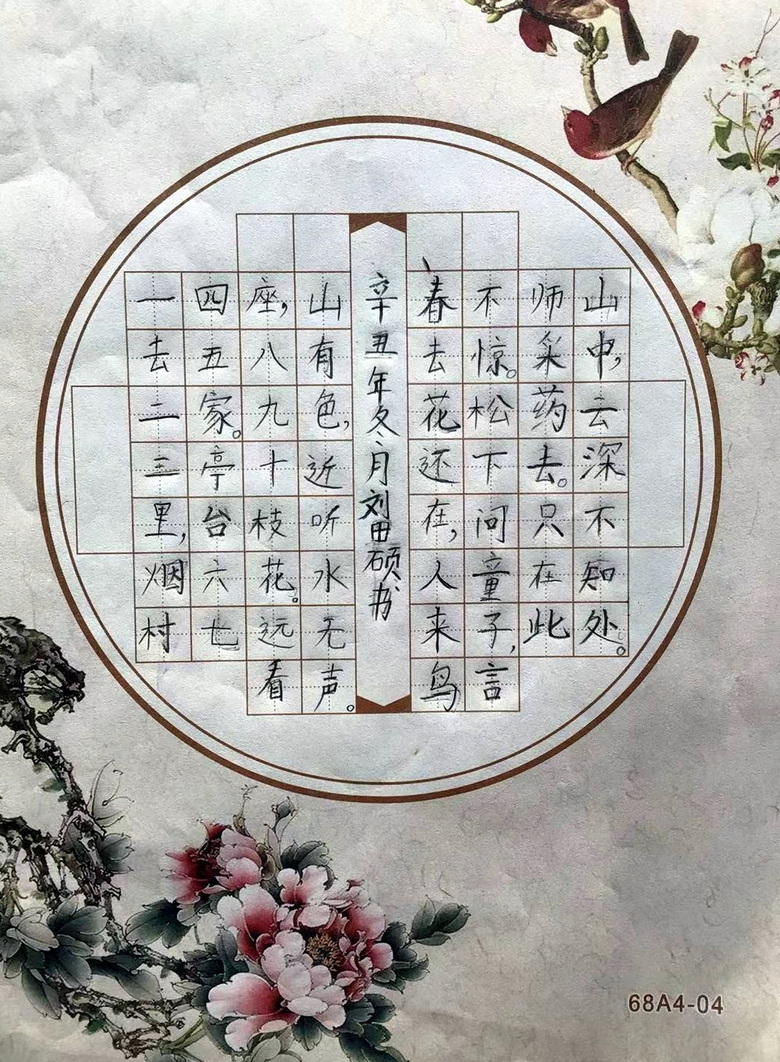 一去二三里,烟村
四五家。亭台六七
座,八九十枝花。远看
山有色,近听水无声。
辛丑年冬月刘田硕书
春去花还在,人来鸟
不惊。松下问童子,言
师采药去。只在此
山中,云深不知处。
68A4-04